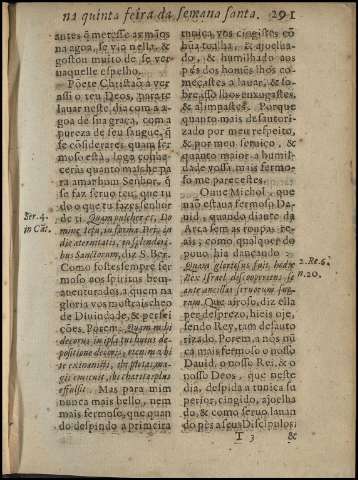 na quinta feira da semana santa. 291
antes q̃ metesse as mãos
na agoa, se vio nella, &
gostou muito de se ver
naquelle espelho.
Poete Christaõ a ver
assi o teu Deos, para te
lauar neste dia com a a-
goa de sua graça, com a
pureza de seu sangue, q̃
se cõsiderares quam fer-
moso està, logo conhe-
ceràs quanto malhe pa-
ra amarhum Senhor, q̃
se faz seruo teu, que tu-
do o que tu fazes senhor
de ti. Quam pulcher es, Do-
mine Iesu, in forma Dei, in
die æternitatis, in splendori-
bus Sanctorum, diz S. Ber.
Como fostes sempre fer-
moso aos spiritus bem-
auenturados, a quem na
gloria vos mostrais cheo
de Diuindade, & perfei-
ções. Porem. Quam mihi
decorus in ipsa tui huius de-
positione decoris, etenim vbi
te exinanisti, ibi pietas ma-
gis emicuit, ibi charitas plus
effulsit. Mas para mim
nunca mais bello, nem
mais fermoso, que quan
do despindo a primeira
Ber. 4.
in Cãt.
tunica, vos cingistes cõ
hũa toalha, & ajoelha-
do, & humilhado aos
pés dos homẽs lhos co-
meçastes a lauar, & so-
bre isso lhos enxugastes,
& alimpastes. Porque
quanto mais desautori-
zado por meu respeito,
& por meu seruiço, &
quanto maior a humil-
dade vossa mais fermo-
so me parecestes.
Ouue Michol, que
não estaua fermoso Da-
uid, quando diante da
Arca sem as roupas re-
ais; como qualquer do
pouo hia dançando:
Quam gloriosus fuit, hodie
Rex Israel discooperiens se
ante ancillas seruorum suo-
rum. Que airoso, diz ella
per desprezo, hieis oje,
sendo Rey, tam desauto
rizado. Porem, a nós nũ
ca mais fermoso o nosso
Dauid, o nosso Rei, & o
nosso Deos, que neste
dia, despida a tunica su
perior, cingido, ajoelha
do, & como seruo lauan
do pès a seus Discipulos:
2. Re. 6.
n. 20.
T 3 &